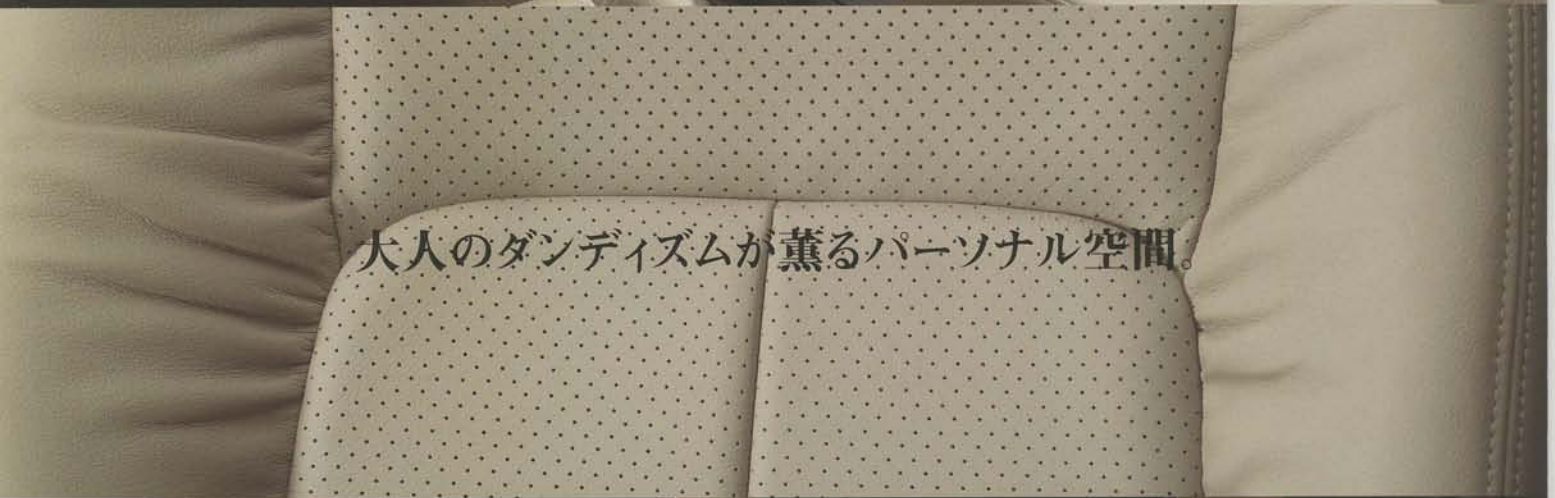 大人のダンディズムが薫るパーソナル空間。